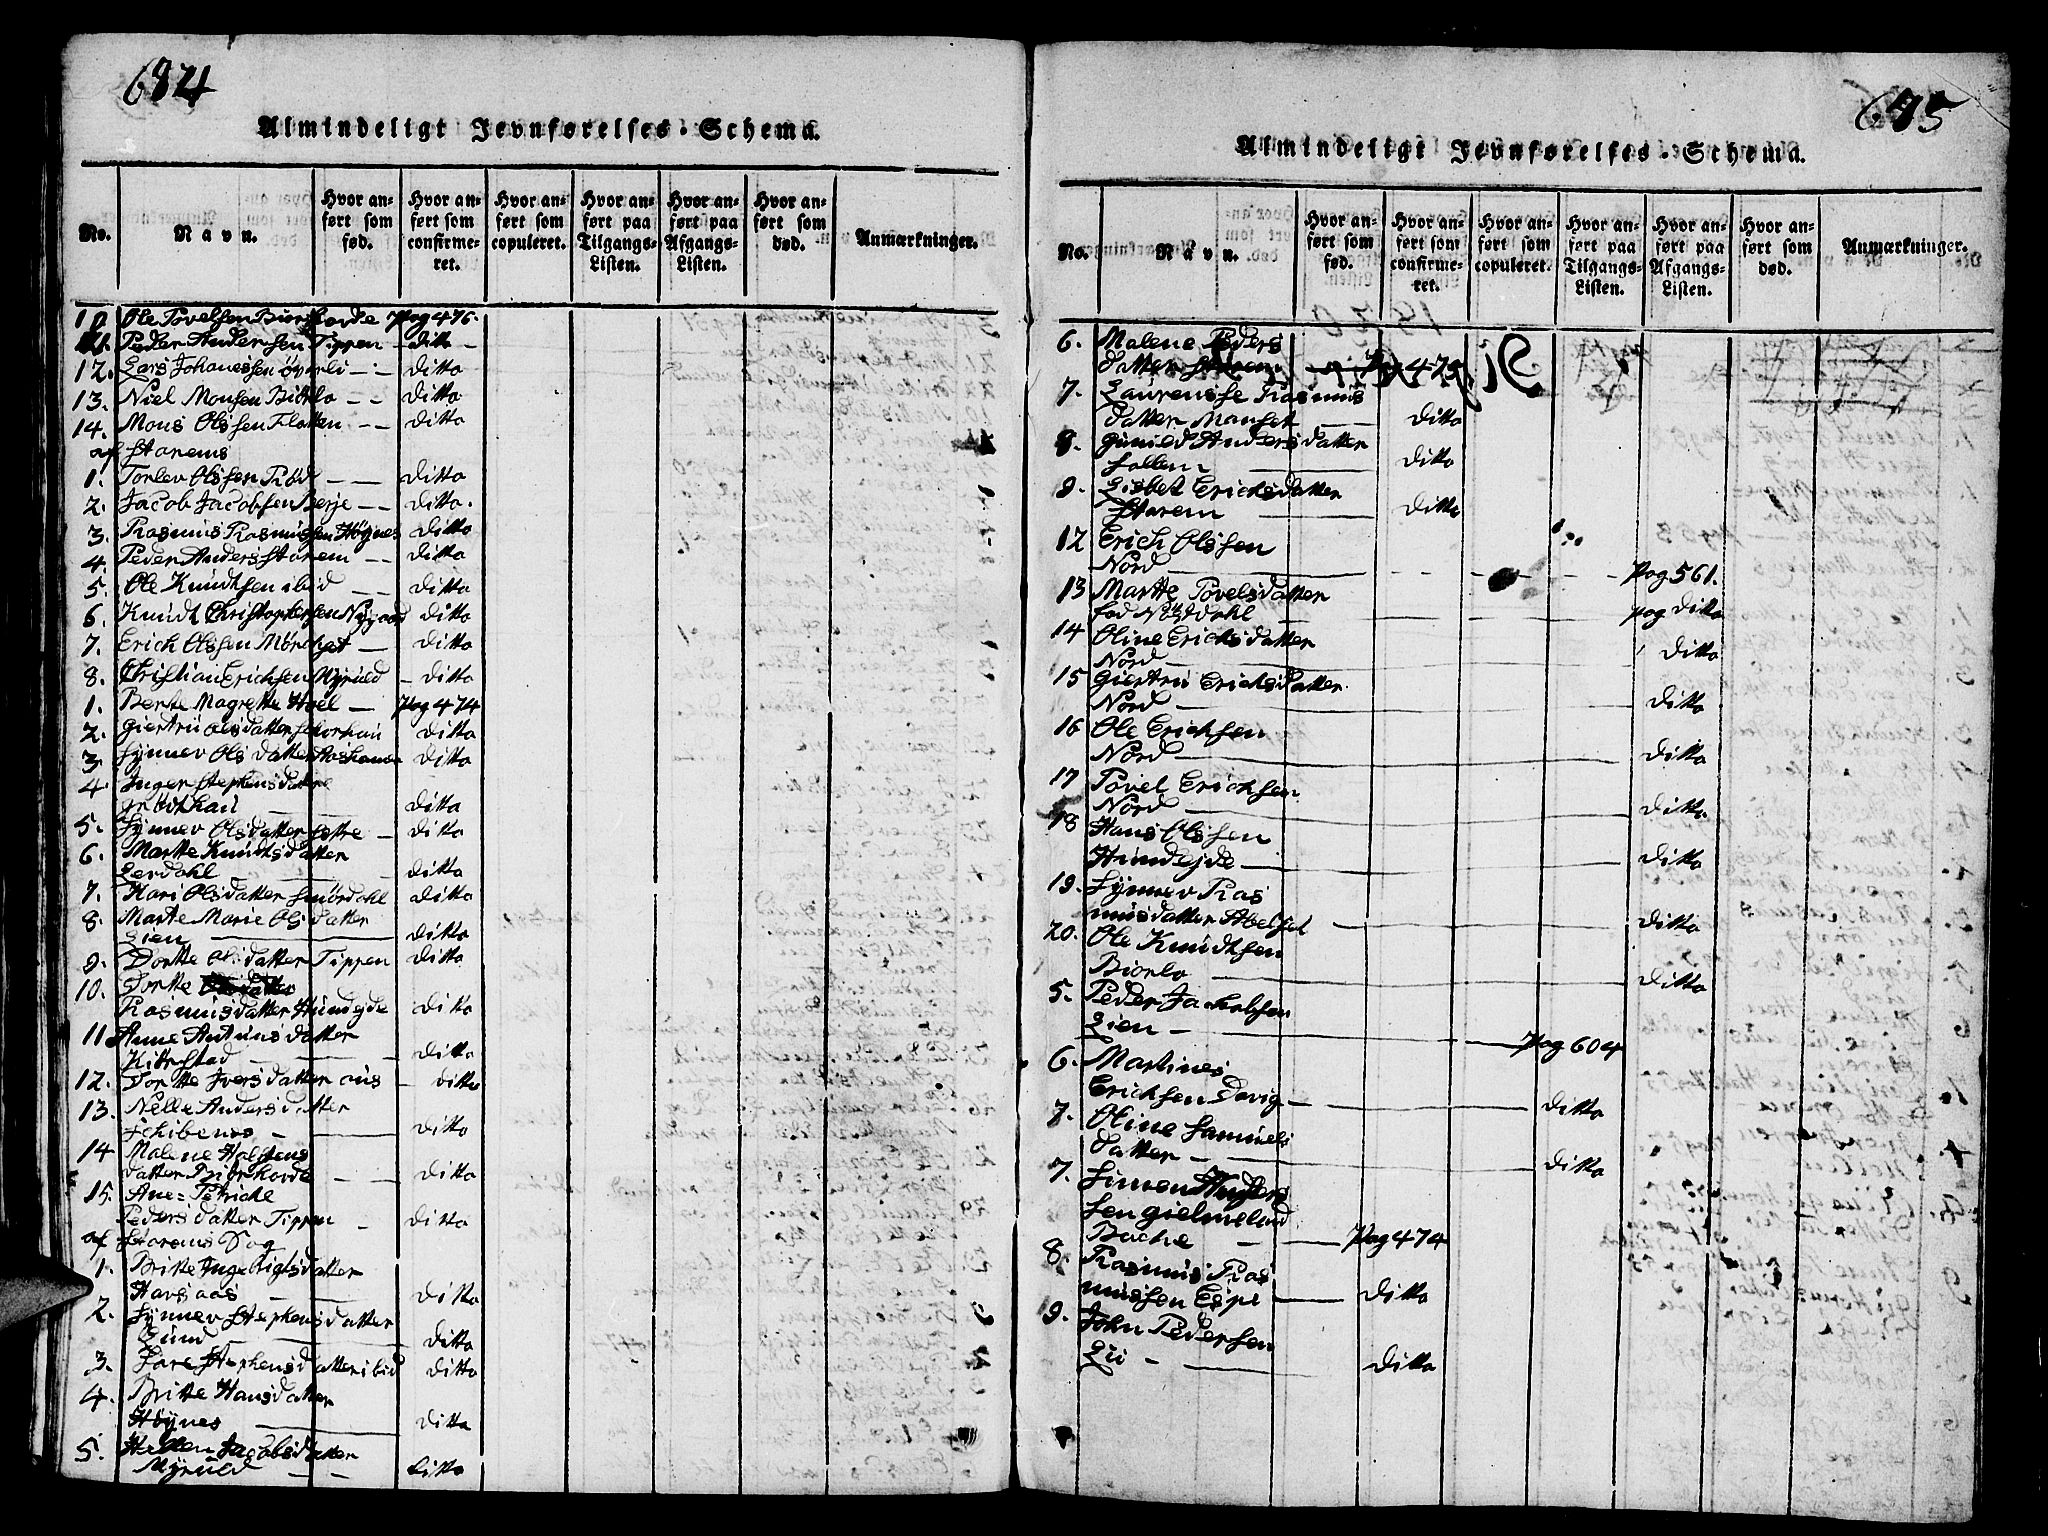 684
Almindeligt Jevnførelses-Schema.
No.
Navn.
Hvor anført som fød.
Hvor anført som confirmeret.
Hvor anført som copuleret.
Hvor anført paa Tilgangs-Listen.
Hvor anført paa Afgangs-Listen.
Hvor anført som død.
Anmærkninger.
10 Ole Povelsen Pag 476.
11. Peder Andersen Tippen - Ditto -
12. Lars Johanessen Øverli - - Ditto
13. Niel Monsen Biørlo - - Ditto
14. Mons Olssen Flatten - - Ditto
af Starems
1. Torlev Olssen Rød - - Ditto
2. Jacob Jacobsen Berje - - Ditto.
3. Rasmus Rasmussen Høynes Ditto
4. Peder Anders Starem - - Ditto
5. Ole Knudtsen ibid - - Ditto
6. Knudt Christophersen Nygaard Ditto
7. Erich Olssen - Ditto
8. Christian Erichsen Myrild - Ditto
1. Berte Magrette Hoel - Pag 474
2. Giertru Olsdatter Ditto
3. Synnev Olsdatter Ditto
4. Inger Stephensdatter
Ditto
5. Synnev Olsdatter - Ditto
6. Martte Knudtsdatter
Lerdahl - - Ditto
7. Kari Olsdatter Smørdahl Ditto
8. Marte Marie Olsdatter
Lien - Ditto
9. Dortte Olsdatter Tippen Ditto
10. Dortte
Rasmusdatter Hundejde Ditto
11. Anne Antonsdatter
- Ditto
12. Dortte Iversdatter aus - Ditto
13. Nelle Andersdatter
- Ditto
14 Malene
datter Biørkhorde - - Ditto
15. Ane = Petricke
Pedersdatter Tippen - Ditto
af Starems Sog
1. Britte Ingebrigtsdatter
- Ditto
2. Synnev Stephensdatter
Lund - Ditto
3. Stephensdatter ibid Ditto
4. Britte Hansdatter
Høynes - Ditto
5. Jacobsdatter
Myrild - - Ditto
675
Almindeligt Jevnførelses-Schema.
No.
Navn.
Hvor anført som fød.
Hvor anført som confirmeret.
Hvor anført som copuleret.
Hvor anført paa Tilgangs-Listen.
Hvor anført paa Afgangs-Listen.
Hvor anført som død.
Anmærkninger.
6. Malene Peders
datter Starem
7. Laurensse Rasmus
datter - - Ditto
8. Gunild Andersdatter
- Ditto
9. Lisbet Erichsdatter
Starem - Ditto
12 Erich Olssen
Nord - Pag 561.
13 Martte Povelsdatter
- pag Ditto
14 Oline Erichsdatter
Nord - Ditto
15 Giertru Erichsdatter
Nord - Ditto
16 Ole Erichsen
Nord - Ditto
17 Povel Erichsen
Nord - Ditto
18 Hans Olssen
Hundejde - Ditto
19. Synnev Ras
musdatter - Ditto
20. Ole Knudtsen
Biorlo - Ditto
5. Peder Jacobsen
Lien - Pag 604
6. Martines
Erichsen Davig - Ditto
7. Oline Samuels
datter - Ditto
7. Simen Anders
sen Gielmelund
Bache - Pag 474
8. Rasmus Ras
mussen Espe - Ditto
9. John Pedersen
Lii - Ditto